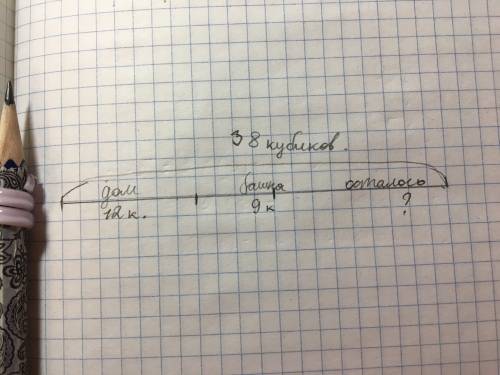 38 кубиков.
дом башня осталось
12 к. 9 к ?